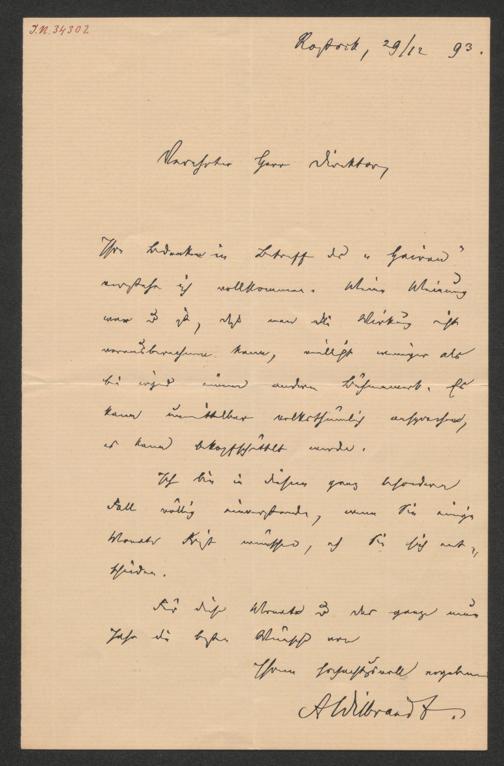 J.N. 34302
Rostock, 29/12 93.
Verehrter Herr Direktor,
Ihre Bedenken in Betreff des „Hairan"
verstehe ich vollkommen. Meine Meinung
war u. ist, daß man die Wirkung nicht
vorausberechnen kann, vielleicht weniger als
bei irgend einem andern Bühnenwerk. Es
kann unmittelbar volksthümlich ansprechen,
es kann bekopfschüttelt werden.
Ich bin in diesem ganz besondern
Fall völlig einverstanden, wenn Sie einige
Monate Frist wünschen, eh Sie sich ent-
scheiden.
Für diese Monate u. das ganze neue
Jahr die besten Wünsche von
Ihrem hochachtungsvoll ergebenen
AWilbrandt.